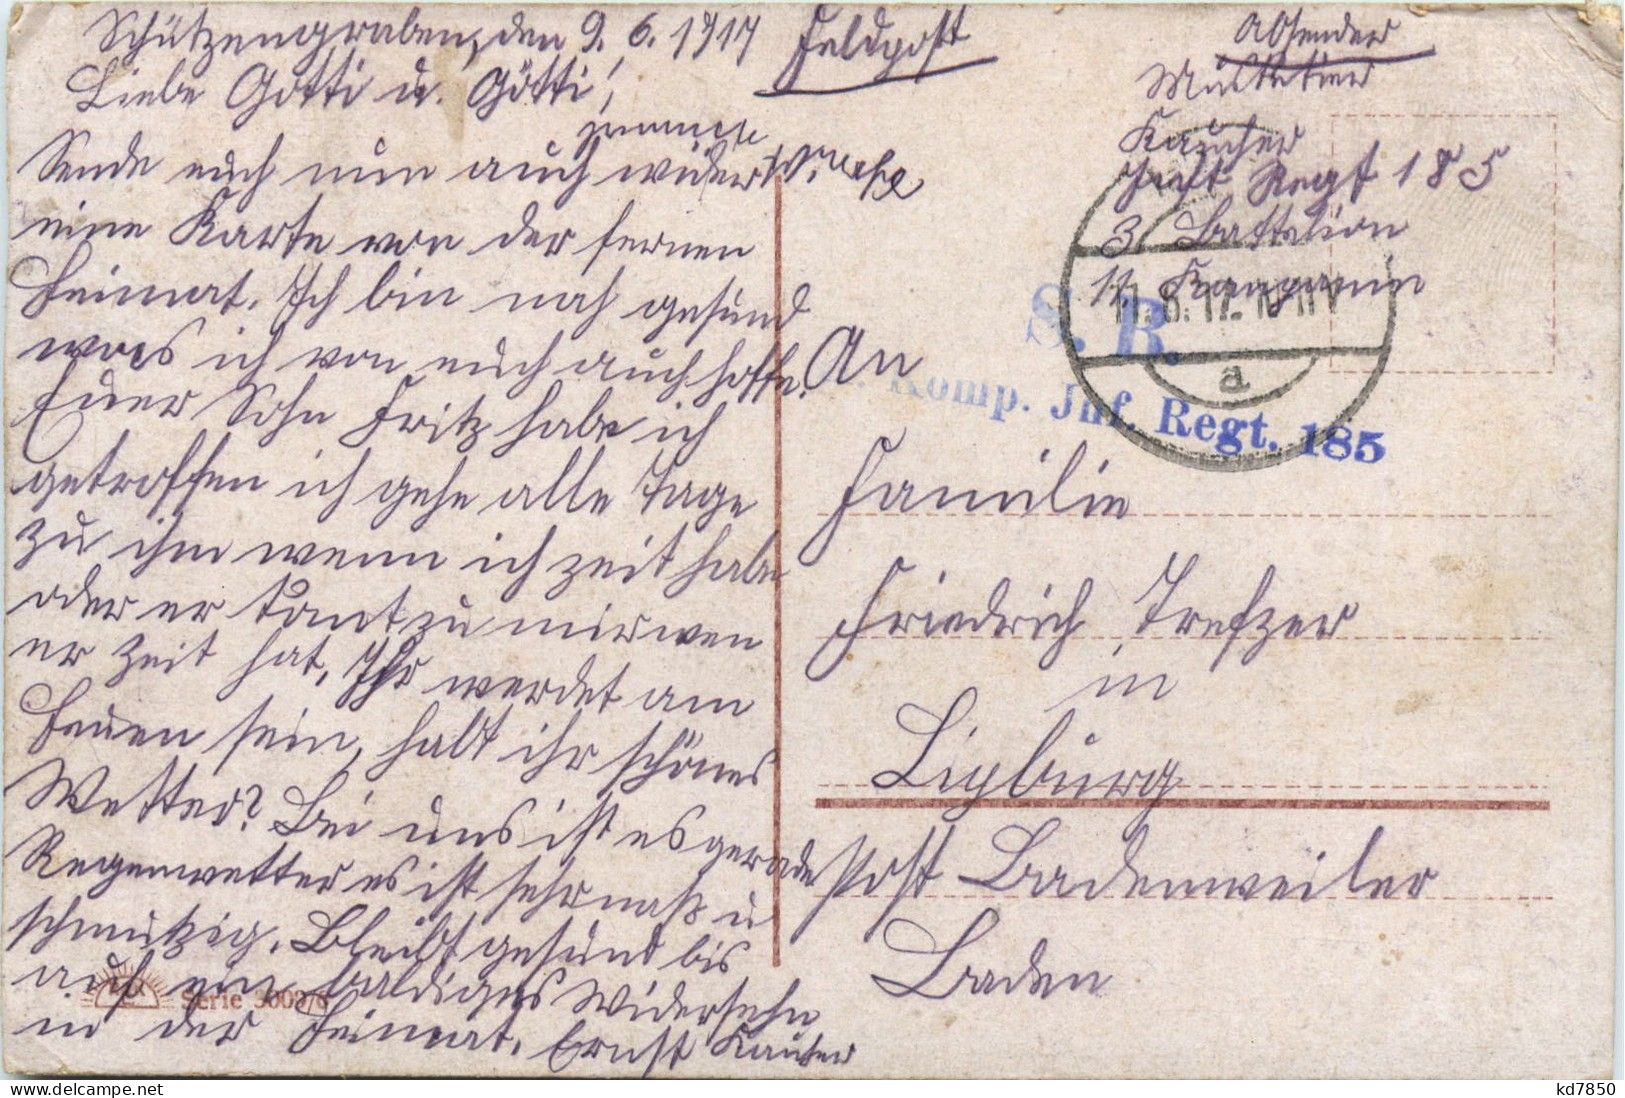 Schützengraben, den 9. 6. 1917
Liebe Gotti u. Götti!
Sende euch nun auch wider
eine Karte von der fernen
Heimat. Ich bin noch gesund
was ich von euch auch hoffe.
Euer Sohn Fritz habe ich
getroffen ich gehe alle Tage
zu ihm wenn ich zeit habe
oder er komt zu mir wen
er Zeit hat. Ihr werdet am
Heuen sein, habt ihr schönes
Wetter? Bei uns ist es gerade
Regenwetter es ist sehr naß u
schmutzig. Bleibt gesund bis
auf ein baldiges Widersehn
in der Heimat. Ernst Kaufer
Serie 3000/6
Feldpost
Absender
Musketier
Inft Regt 185
3 Battalion
11. Kompanie
11.6.17.
a
S. B.
Komp. Inf. Regt. 185
An
Familie
Friedrich Trefzer
in
Lipburg
Post Badenweiler
Baden
kd7850